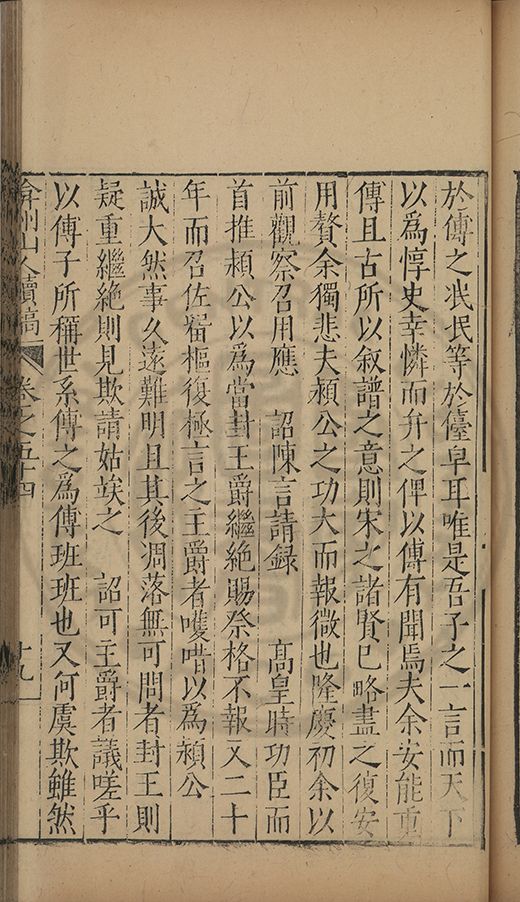 於傳之氓氓等於儓皁耳唯是吾子之一言而天下
以爲惇史幸憐而弁之俾以傳有聞焉夫余安能重
傳且古所以叙譜之意則宋之諸賢已略盡之復安
用贅余獨悲夫潁公之功大而報微也隆慶初余以
前觀察召用應　詔陳言請録　高皇時功臣而
首推潁公以爲當封王爵繼絶賜祭格不報又二十
年而召佐留樞復極言之主爵者嚄唶以爲潁公
誠大然事久遠難明且其後凋落無可問者封王則
疑重繼絶則見欺請姑竢之　詔可主爵者議嗟乎
以傳子所稱世系傳之爲傳班班也又何虞欺雖然
弇州山人續稿　卷之五十四　十九